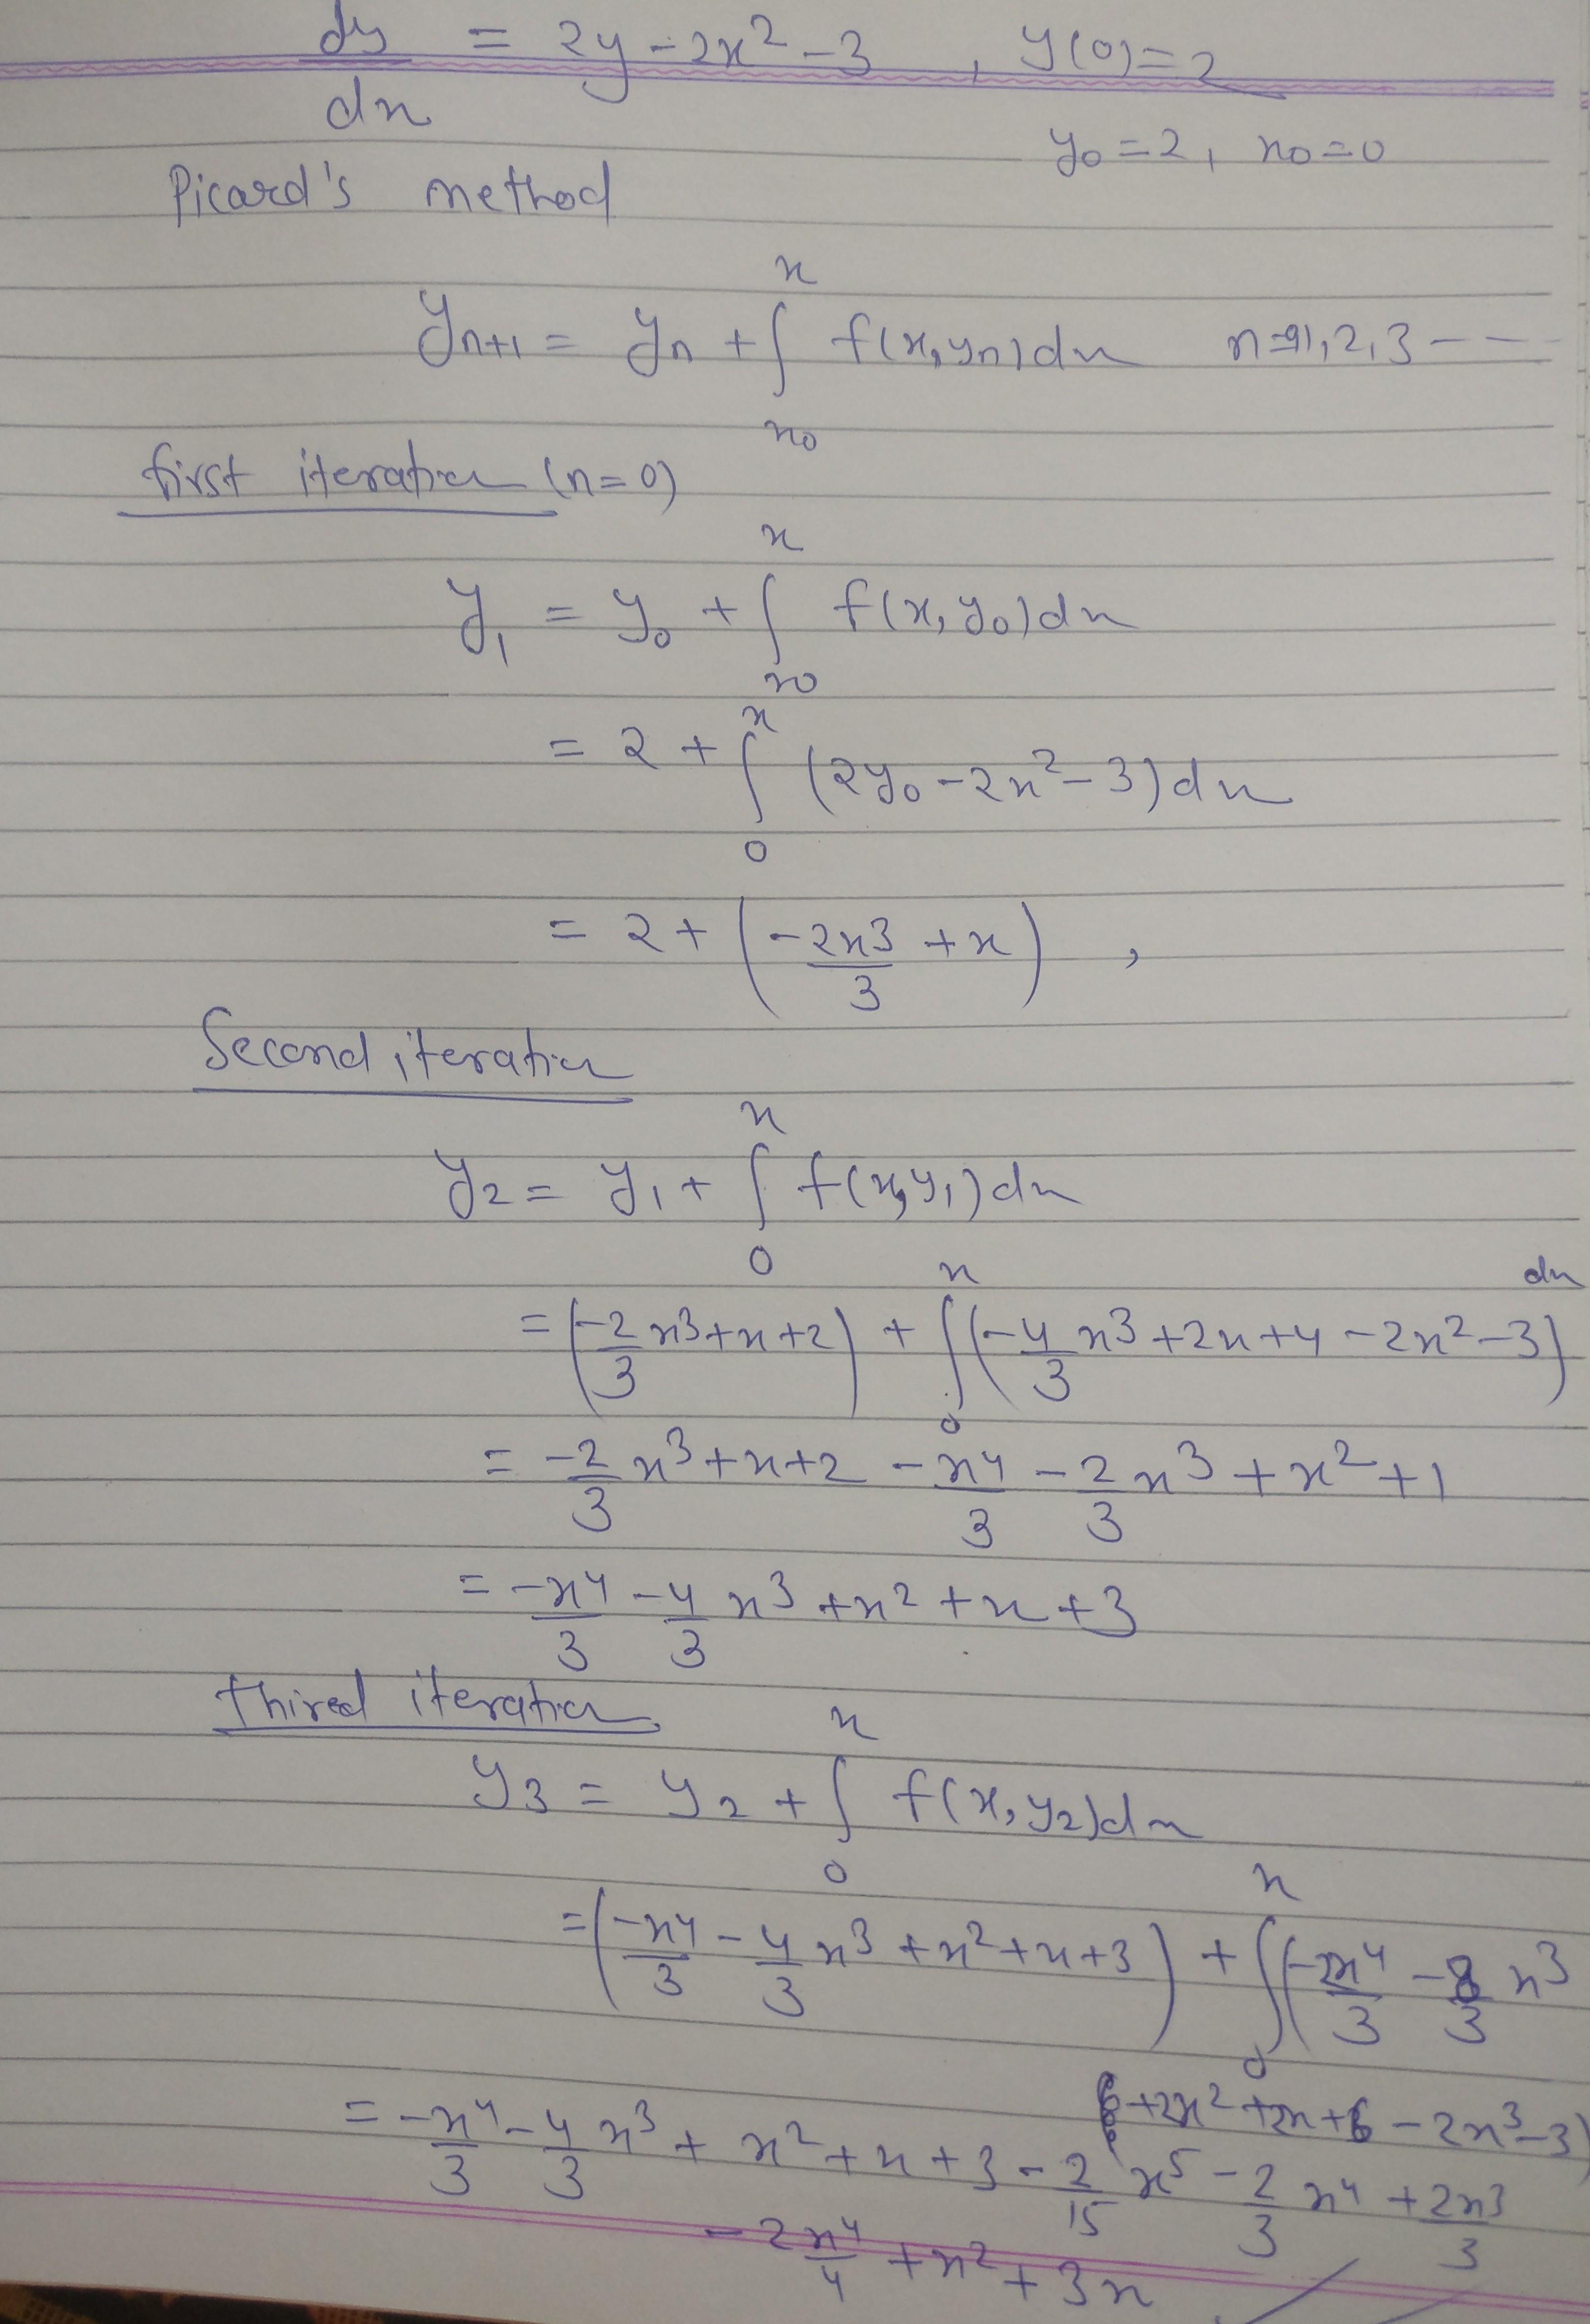 dy/dx = 2y - 2x² - 3 , y(0) = 2
y₀ = 2, x₀ = 0
Picard's method
yₙ₊₁ = yₙ + ∫ₓ₀ˣ f(x, yₙ)dx n = 0, 1, 2, 3 - - -
first iteration (n = 0)
y₁ = y₀ + ∫ₓ₀ˣ f(x, y₀)dx
= 2 + ∫₀ˣ (2y₀ - 2x² - 3)dx
= 2 + (-2x³/3 + x) ,
Second iteration
y₂ = y₁ + ∫₀ˣ f(x, y₁)dx
= (-2/3 x³ + x + 2) + ∫₀ˣ (-4/3 x³ + 2x + 4 - 2x² - 3) dx
= -2/3 x³ + x + 2 - x⁴/3 - 2/3 x³ + x² + 1
= -x⁴/3 - 4/3 x³ + x² + x + 3
thired iteration
y₃ = y₂ + ∫₀ˣ f(x, y₂)dx
= (-x⁴/3 - 4/3 x³ + x² + x + 3) + ∫₀ˣ (-2x⁴/3 - 8/3 x³
+ 2x² + 2x + 6 - 2x³ - 3)
= -x⁴/3 - 4/3 x³ + x² + x + 3 - 2/15 x⁵ - 2/3 x⁴ + 2x³/3
- 2x⁴/4 + x² + 3x